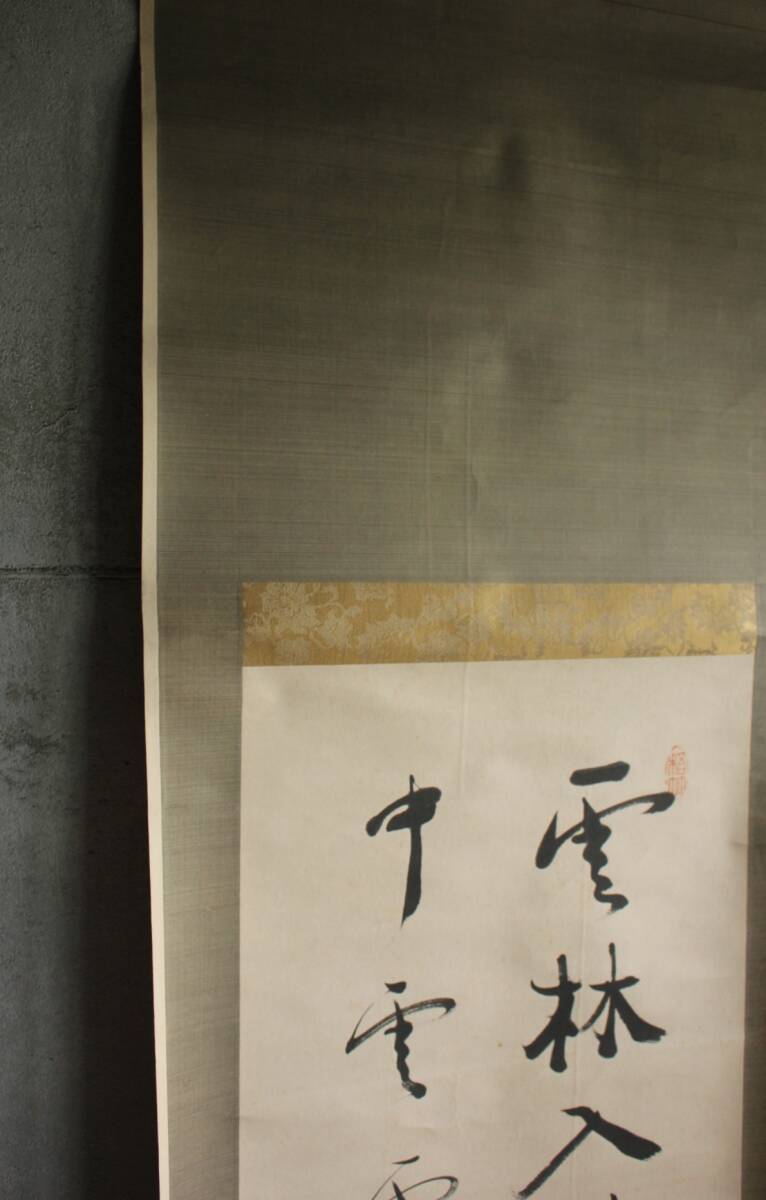 雲林入
中雲